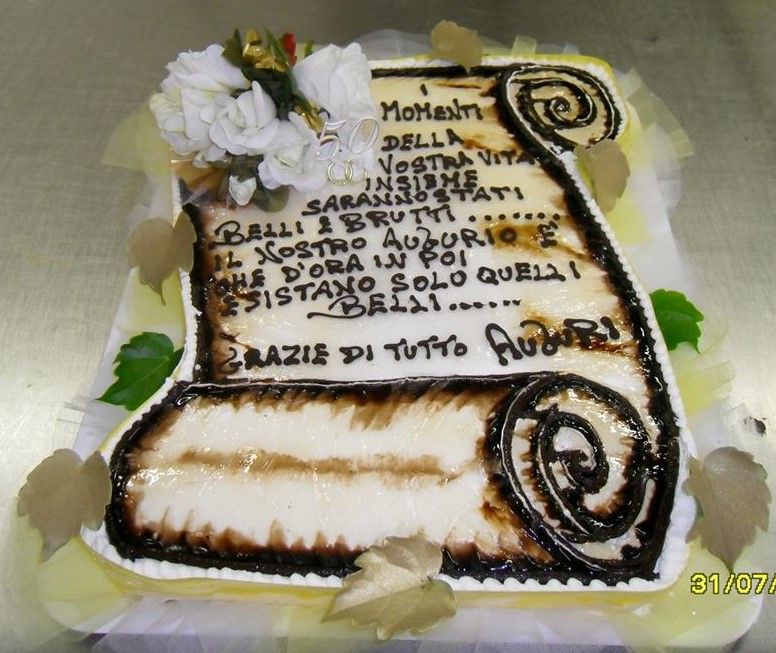 50
I
MOMENTI
DELLA
VOSTRA VITA
INSIEME
SARANNO STATI
BELLI E BRUTTI .......
IL NOSTRO AUGURIO È
CHE D'ORA IN POI
ESISTANO SOLO QUELLI
BELLI......
GRAZIE DI TUTTO AUGURI
31/07/